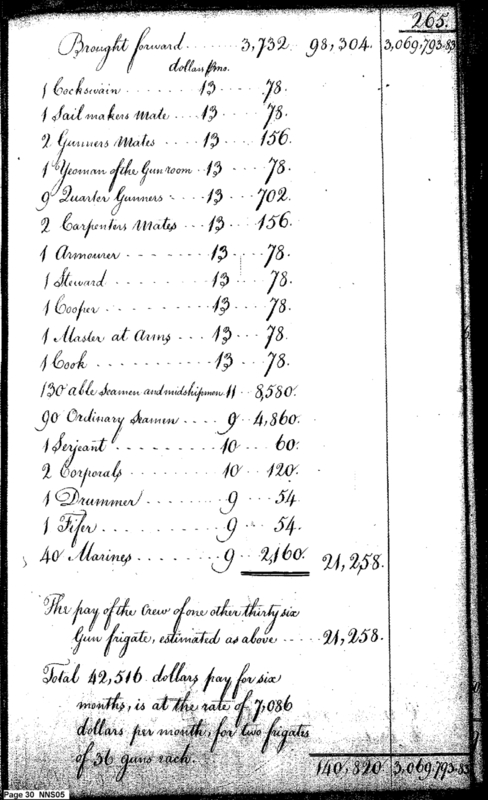 265.
Brought forward ....... 3,732 98,304. 3,069,793.83
dollars pr mo.
1 Cockswain ....... 13 ... 78.
1 Sail makers Mate .... 13 ... 78.
2 Gunners Mates .... 13 .... 156.
1 Yeoman of the Gun room .. 13 .... 78.
9 Quarter Gunners .... 13 ... 702.
2 Carpenters Mates .... 13 ... 156.
1 Armourer ....... 13 ... 78.
1 Steward ....... 13 ... 78.
1 Cooper ....... 13 ... 78.
1 Master at Arms .... 13 ... 78.
1 Cook ....... 13 ... 78.
130 able Seamen and midshipmen 11 .. 8,580.
90 Ordinary Seamen .... 9 .. 4,860.
1 Serjeant ....... 10 ... 60.
2 Corporals ....... 10 ... 120.
1 Drummer ....... 9 ... 54
1 Fifer ....... 9 ... 54.
40 Marines ....... 9 ... 2,160. 21,258.
The pay of the Crew of one other thirty six
Gun frigate, estimated as above .... 21,258.
Total 42,516 dollars pay for six
months, is at the rate of 7,086
dollars per month, for two frigates
of 36 guns each.
140,820 3,069,793.83
Page 30 NNS05